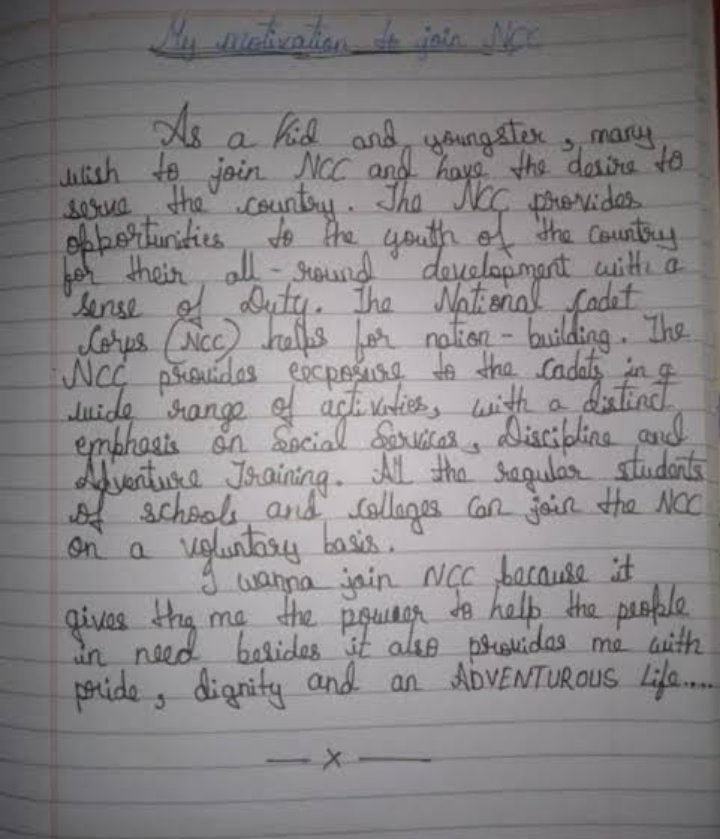 My motivation to join NCC
As a kid and youngster, many
wish to join NCC and have the desire to
serve the country. The NCC provides
opportunities to the youth of the country
for their all-round development with a
sense of Duty. The National Cadet
Corps (NCC) helps for nation-building. The
NCC provides exposure to the cadets in a
wide range of activities, with a distinct
emphasis on Social Services, Discipline and
Adventure Training. All the regular students
of schools and colleges can join the NCC
on a voluntary basis.
I wanna join NCC because it
gives the me the power to help the people
in need besides it also provides me with
pride, dignity and an ADVENTUROUS Life....
— x —